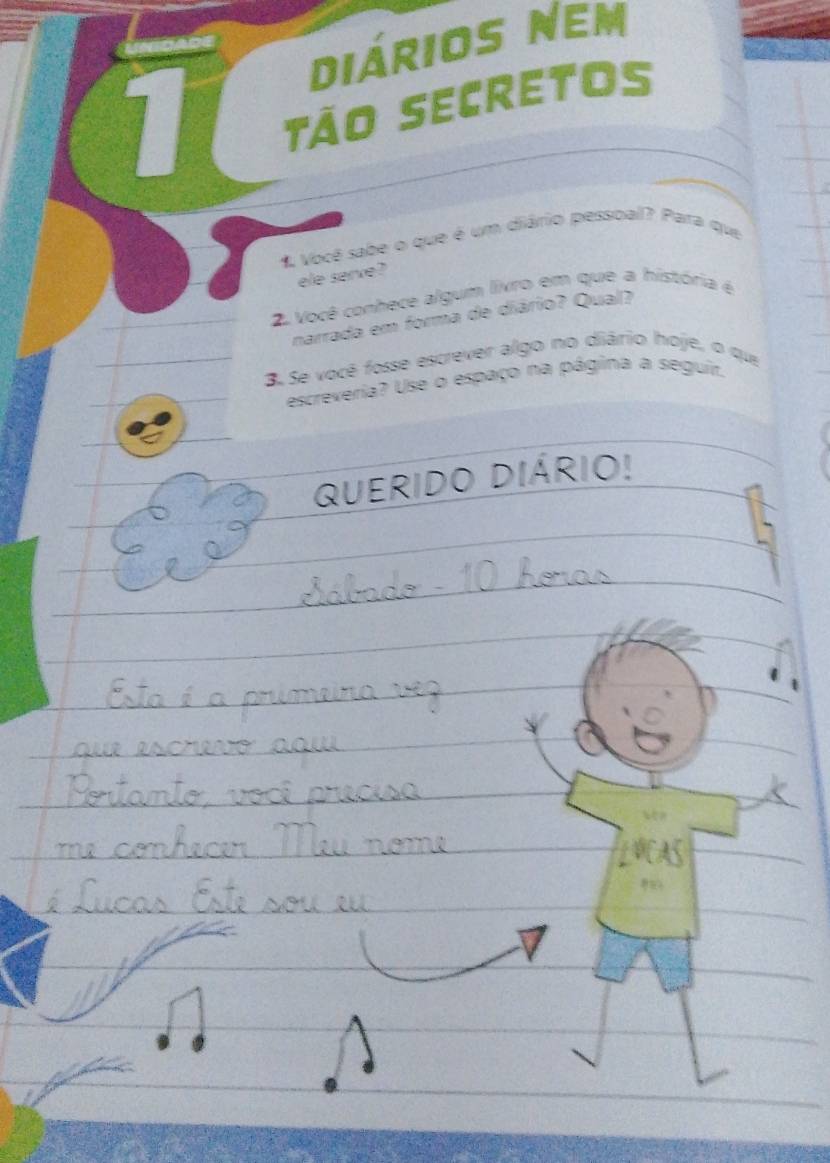 UNIDADE
1
DIÁRIOS NEM
TÃO SECRETOS
1. Você sabe o que é um diário pessoal? Para que
ele serve?
2. Você conhece algum livro em que a história é
narrada em forma de diário? Qual?
3. Se você fosse escrever algo no diário hoje, o que
escreveria? Use o espaço na página a seguir.
QUERIDO DIÁRIO!
Sábado - 10 horas
Esta é a primeira vez
que escrevo aqui
Portanto, você precisa
me conhecer Meu nome
é Lucas Este sou eu
LUCAS